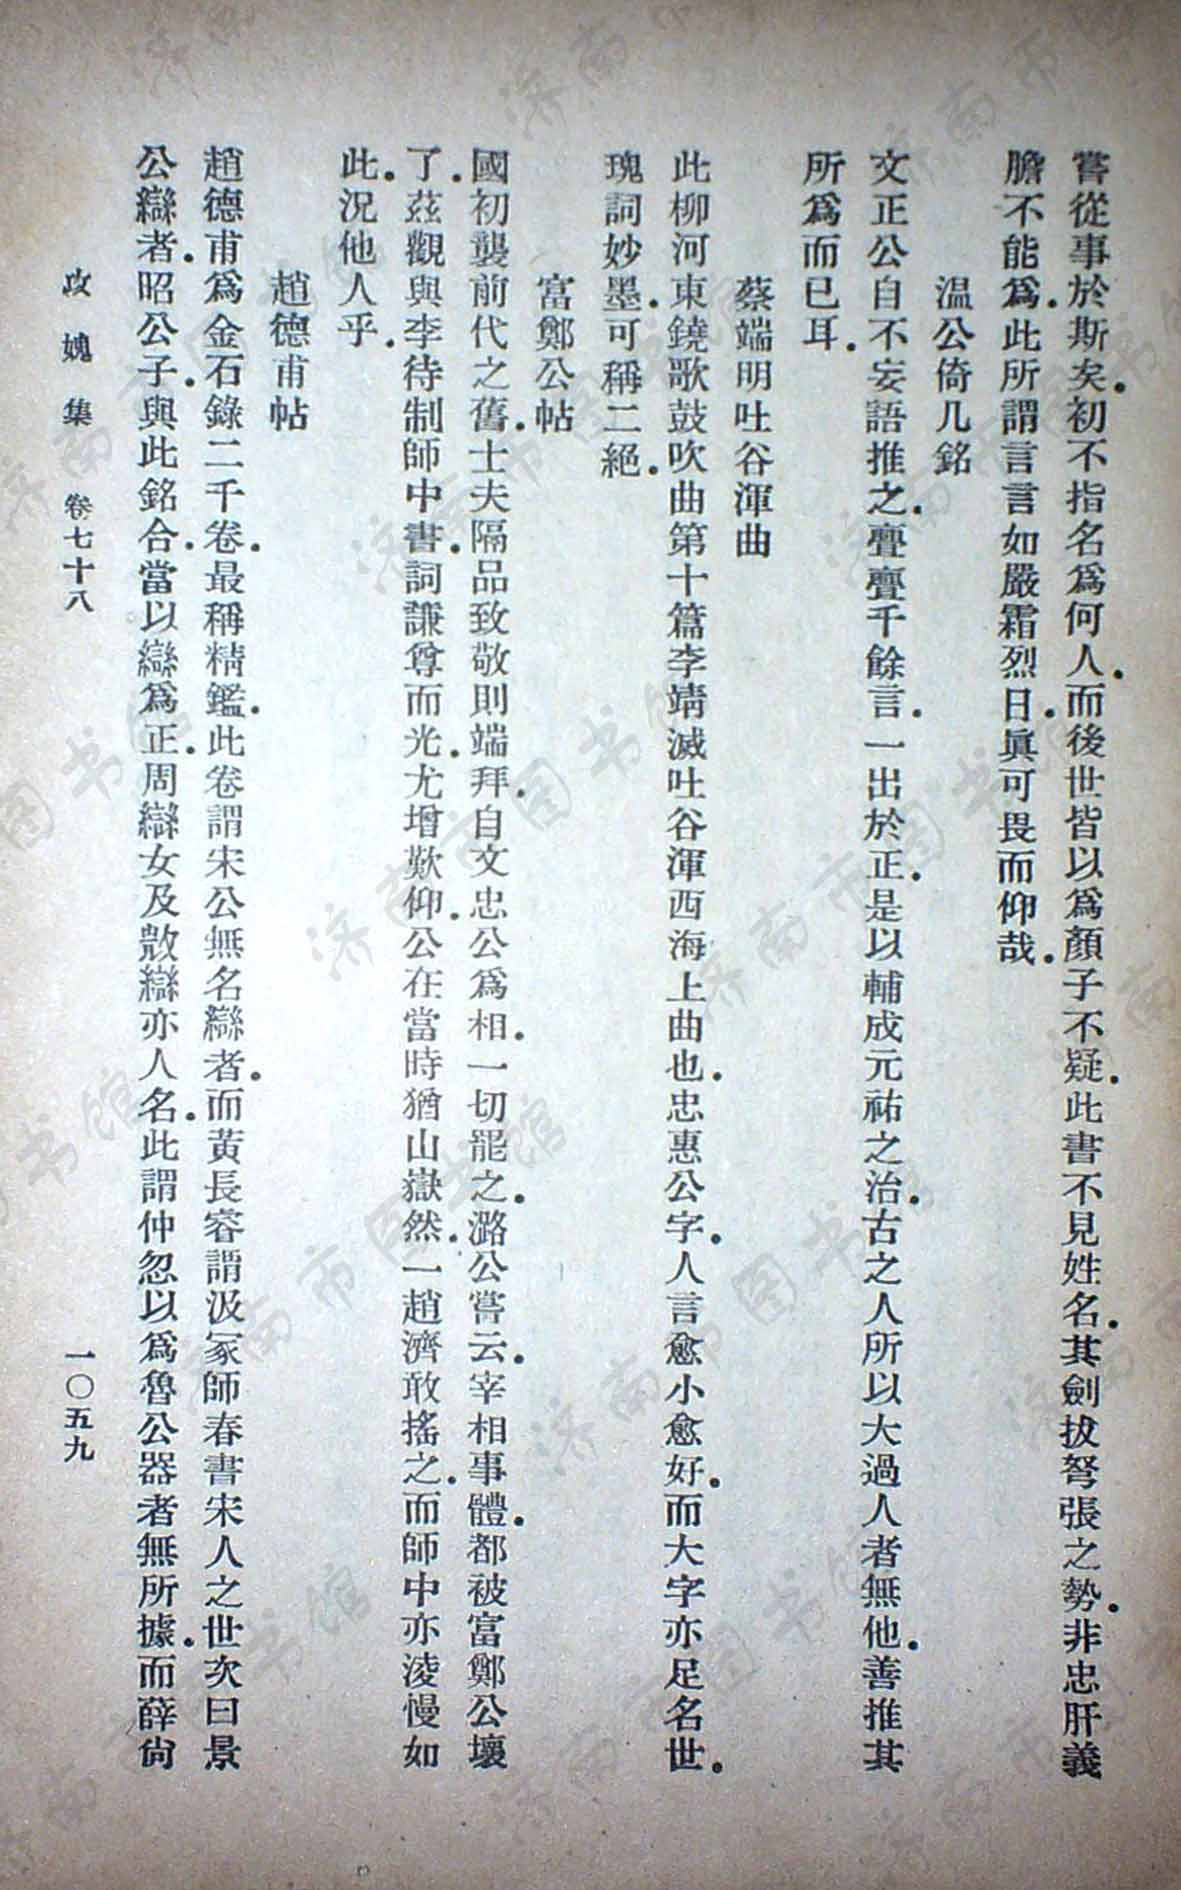 嘗從事於斯矣.初不指名爲何人.而後世皆以爲顏子不疑.此書不見姓名.其劍拔弩張之勢.非忠肝義
膽不能爲.此所謂言言如嚴霜烈日.眞可畏而仰哉.
温公倚几銘
文正公自不妄語推之.亹亹千餘言.一出於正.是以輔成元祐之治.古之人所以大過人者無他.善推其
所爲而已耳.
蔡端明吐谷渾曲
此柳河東鐃歌鼓吹曲第十篇李靖滅吐谷渾西海上曲也.忠惠公字.人言愈小愈好.而大字亦足名世.
瑰詞妙墨.可稱二絕.
富鄭公帖
國初襲前代之舊.士夫隔品致敬則端拜.自文忠公爲相.一切罷之.潞公嘗云.宰相事體.都被富鄭公壞
了.茲觀與李待制師中書.詞謙尊而光.尤增歎仰.公在當時猶山嶽然.一趙濟敢搖之.而師中亦淩慢如
此.況他人乎.
趙德甫帖
趙德甫爲金石錄二千卷.最稱精鑑.此卷謂宋公無名䜌者.而黃長睿謂汲冢師春書宋人之世次曰景
公䜌者.昭公子.與此銘合.當以䜌爲正.周䜌女及敾䜌亦人名.此謂仲忽以爲魯公器者無所據.而薛尙
攻媿集 卷七十八 一〇五九
济南市图书馆